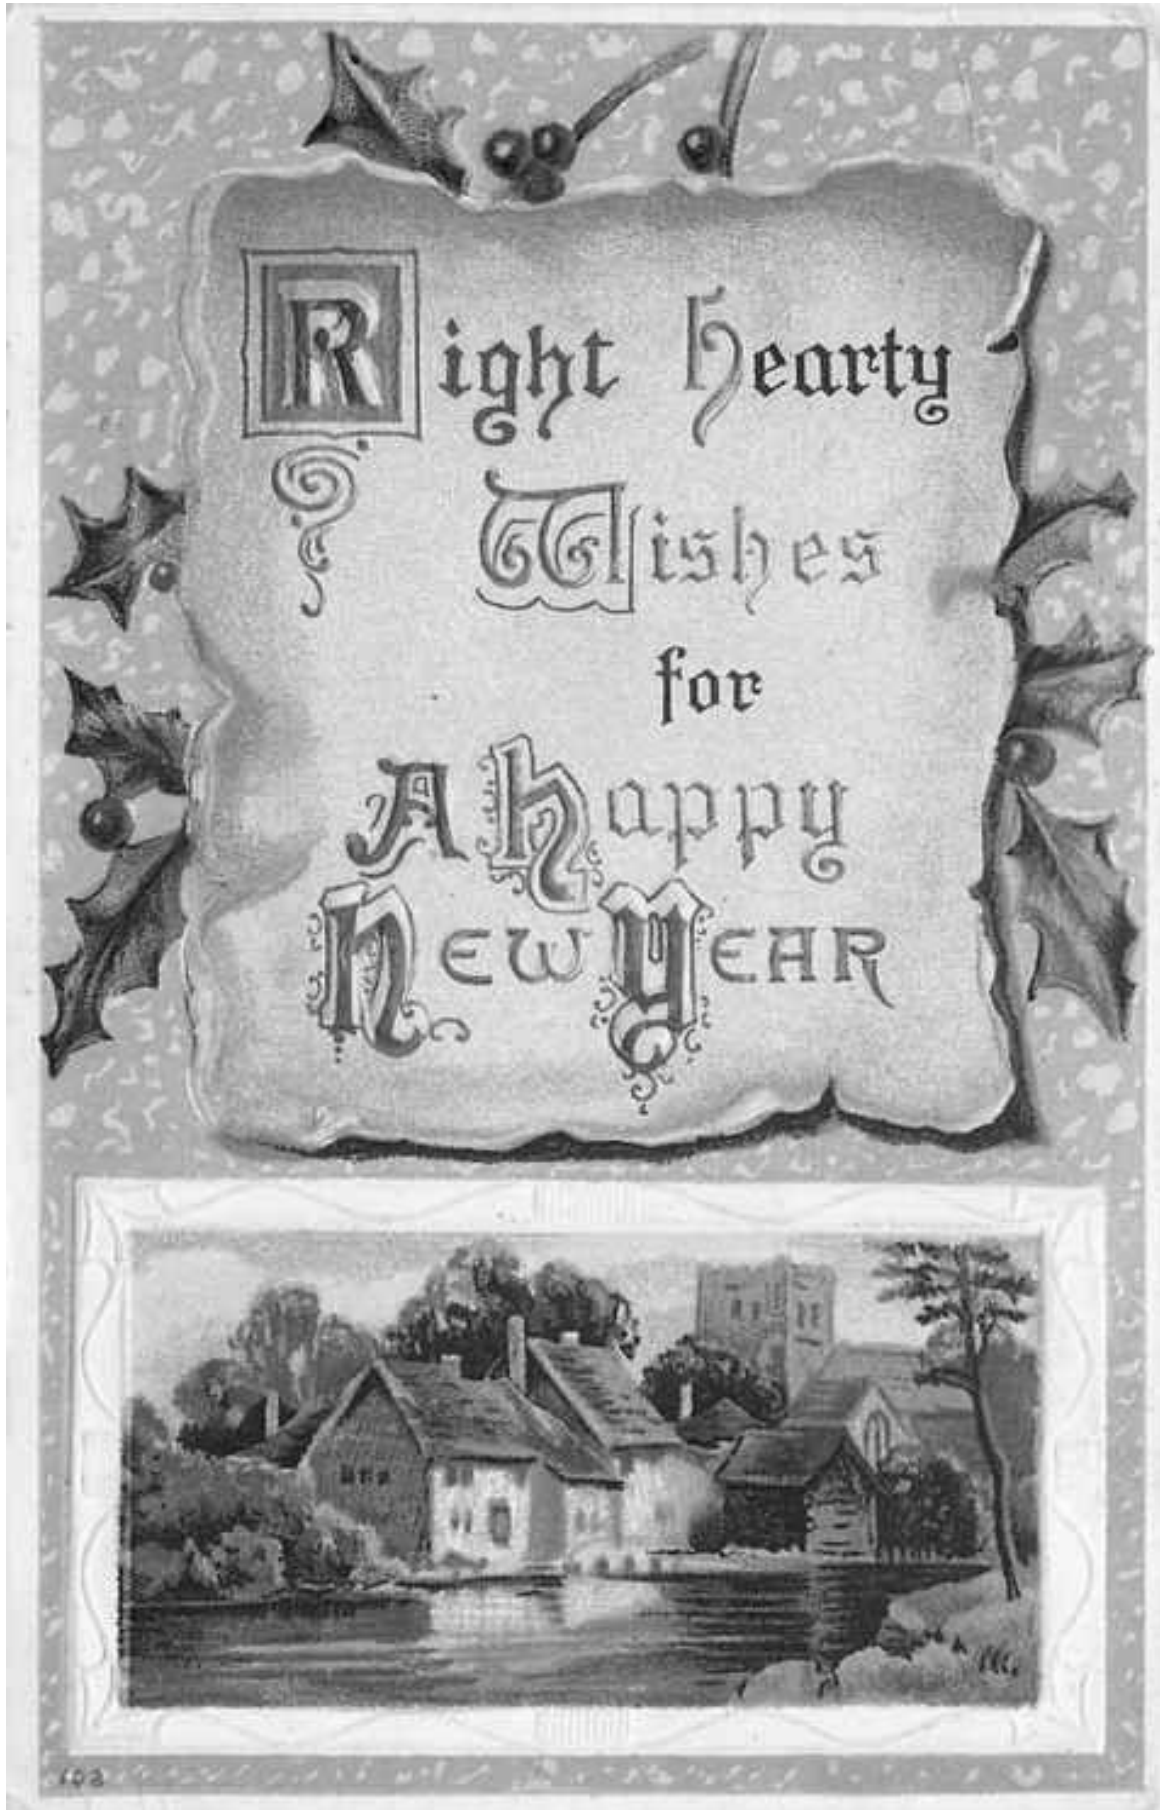 Right hearty
Wishes
for
A Happy
NEW YEAR
103